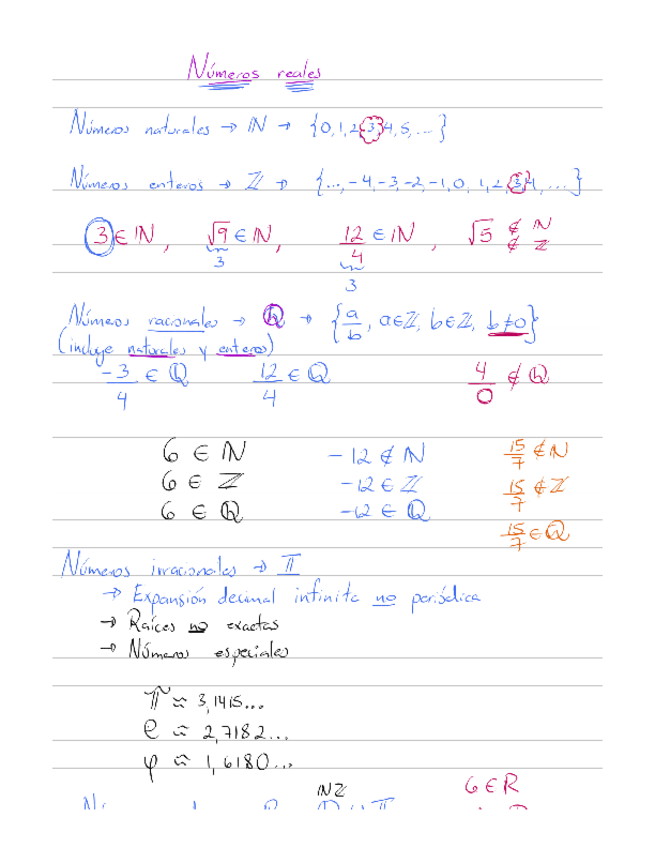 Números reales
Números naturales → ℕ → {0,1,2,3,4,5,...}
Números enteros → ℤ → {...,-4,-3,-2,-1,0,1,2,3,4,...}
3 ∈ ℕ, √9 ∈ ℕ, 12/4 ∈ ℕ, √5 ∉ ℕ
3 ∉ ℤ
3
Números racionales → ℚ → {a/b, a∈ℤ, b∈ℤ, b≠0}
(incluye naturales y enteros)
-3/4 ∈ ℚ 12/4 ∈ ℚ 4/0 ∉ ℚ
6 ∈ ℕ -12 ∉ ℕ 15/7 ∉ ℕ
6 ∈ ℤ -12 ∈ ℤ 15/7 ∉ ℤ
6 ∈ ℚ -12 ∈ ℚ 15/7 ∈ ℚ
Números irracionales → 𝕀
→ Expansión decimal infinita no periódica
→ Raíces no exactas
→ Números especiales
π ≈ 3,1415...
e ≈ 2,7182...
φ ≈ 1,6180...
ℕ ℤ 6 ∈ R